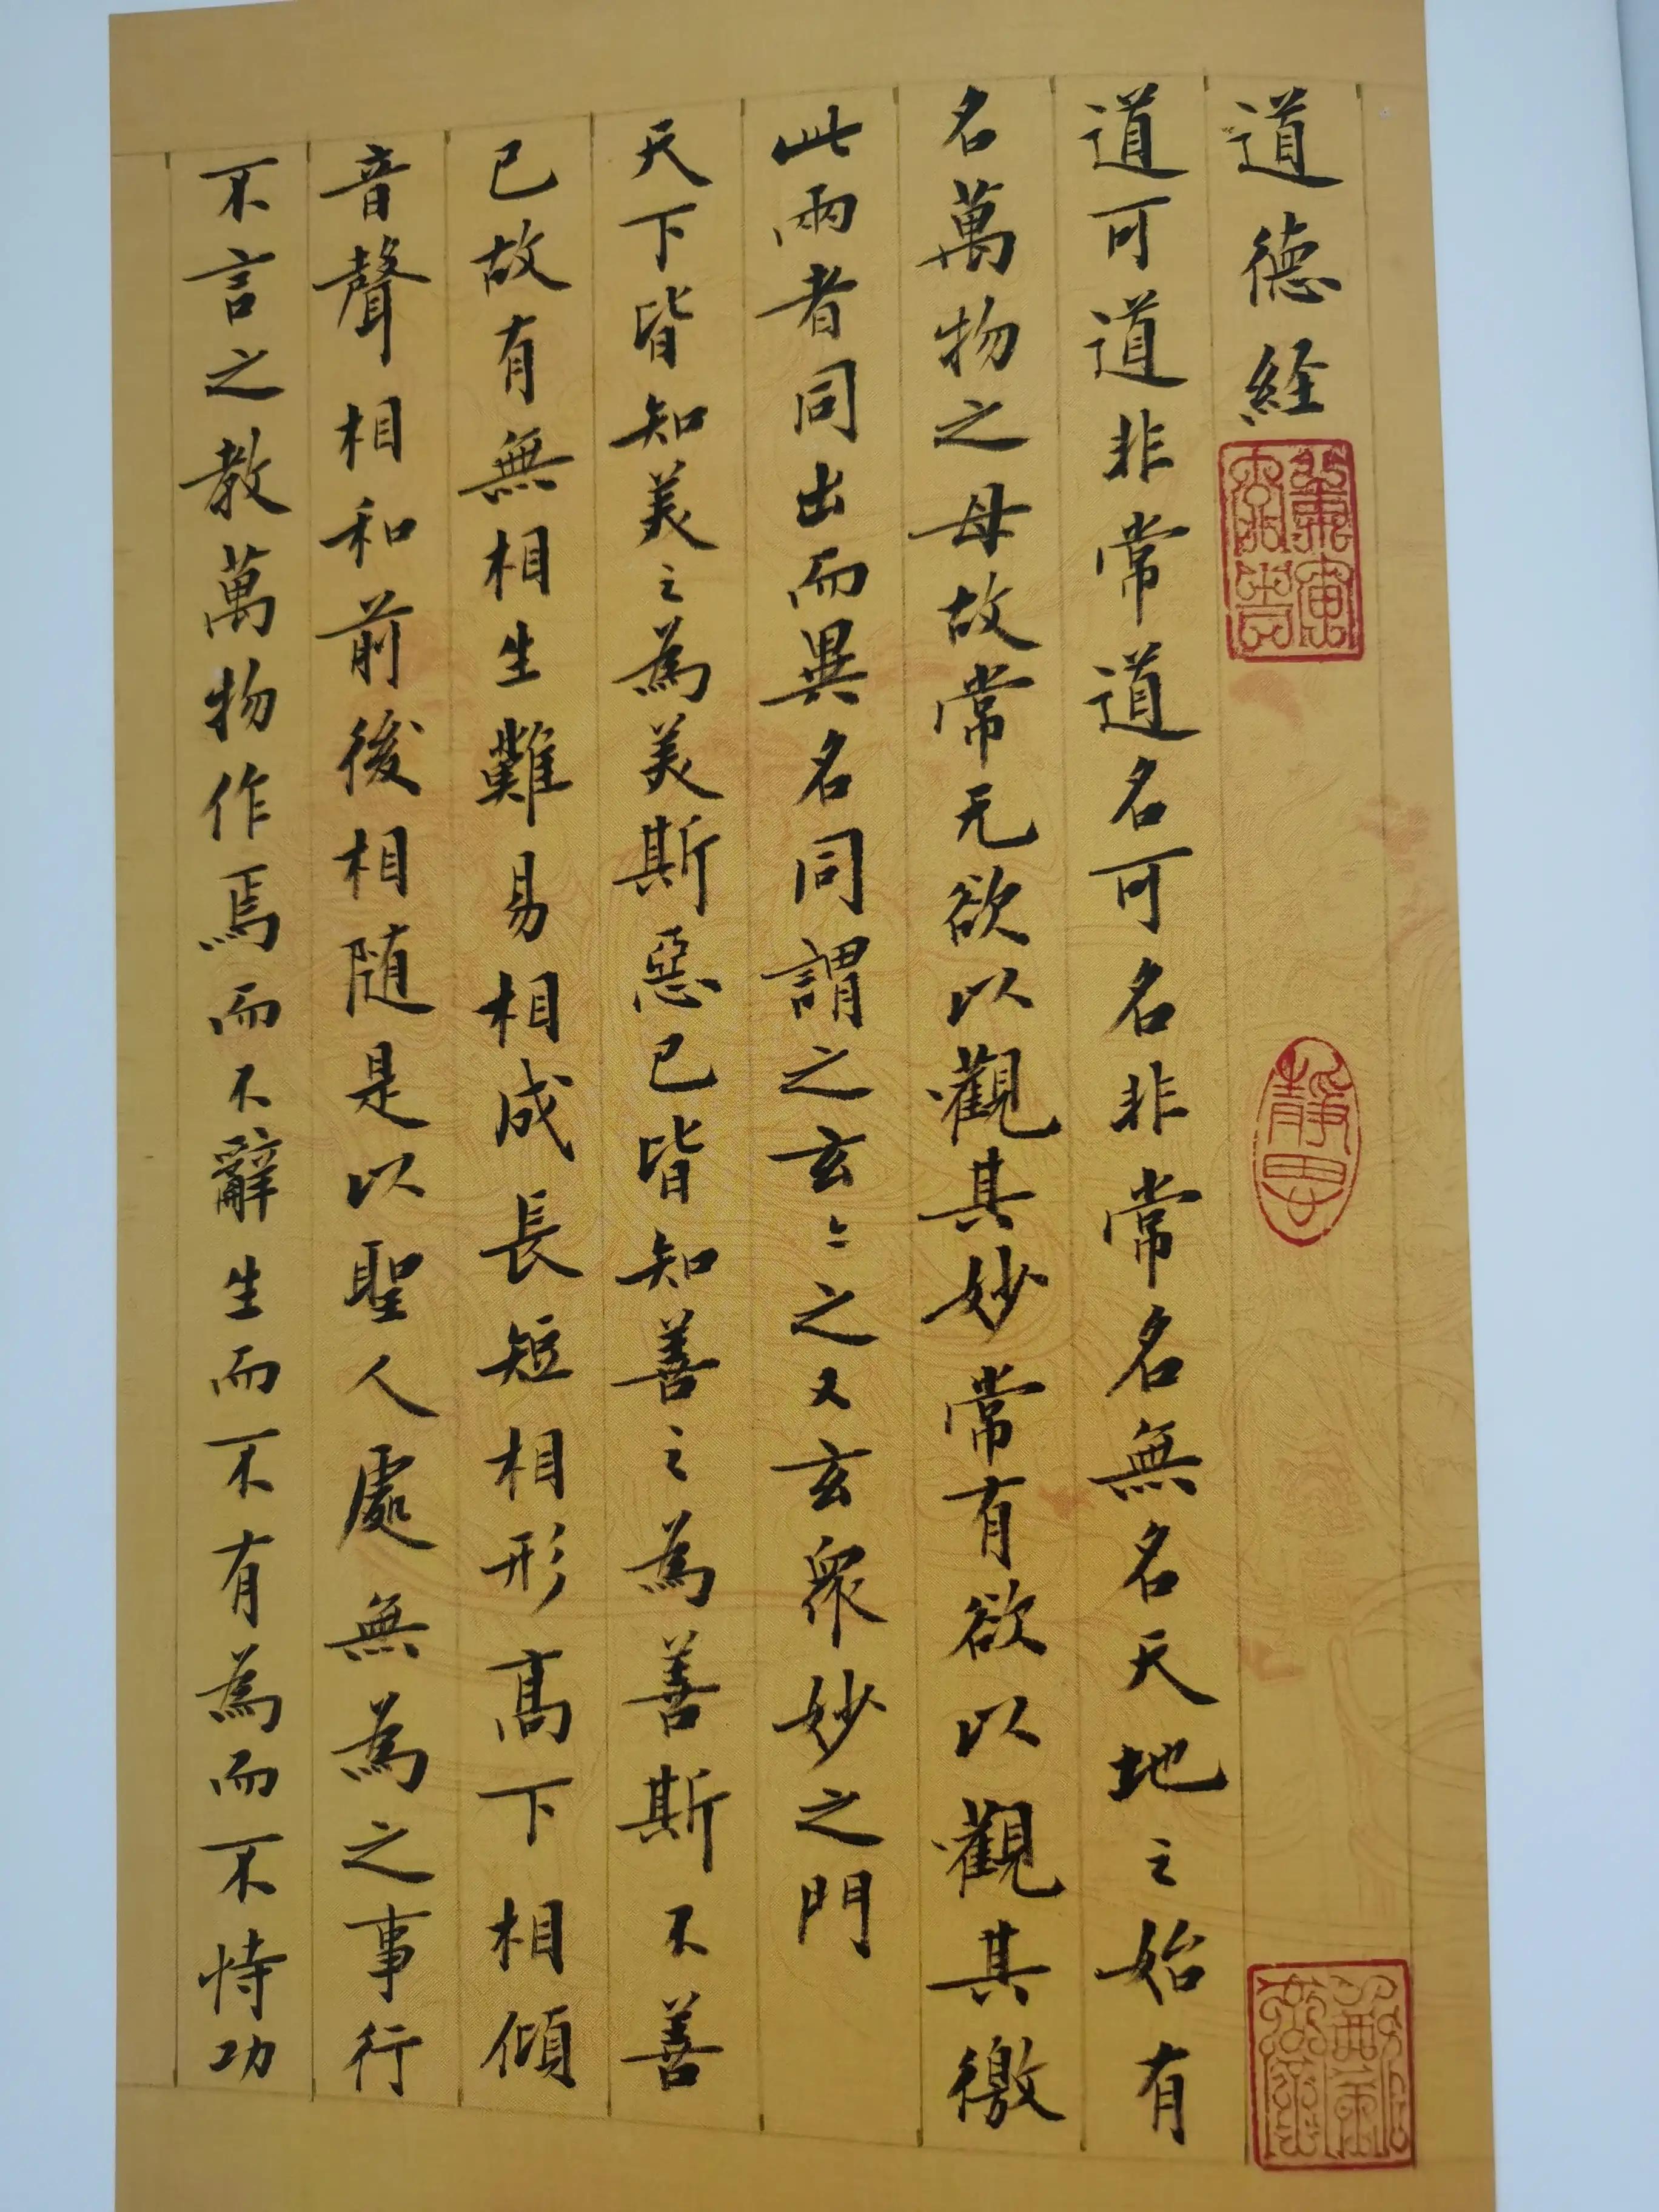 道德経
道可道非常道名可名非常名無名天地之始有
名萬物之母故常无欲以觀其妙常有欲以觀其徼
此兩者同出而異名同謂之玄〻之又玄衆妙之門
天下皆知美之為美斯惡已皆知善之為善斯不善
已故有無相生難易相成長短相形高下相傾
音聲相和前後相随是以聖人處無為之事行
不言之教萬物作焉而不辭生而不有為而不恃功